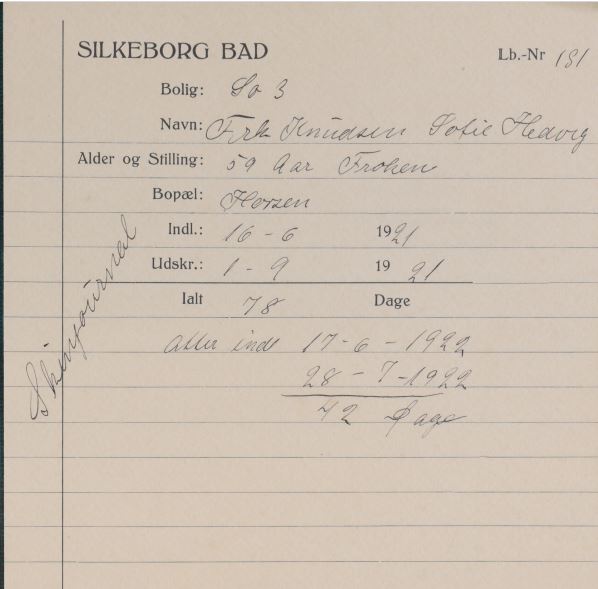 SILKEBORG BAD
Lb.-Nr 181
Bolig: So 3
Navn: Frk Knudsen Sofie Hedvig
Alder og Stilling: 59 Aar Frøken
Bopæl: Horsen
Indl.: 16-6 1921
Udskr.: 1-9 1921
Ialt 78 Dage
atter indl 17-6-1922
28-7-1922
42 Dage